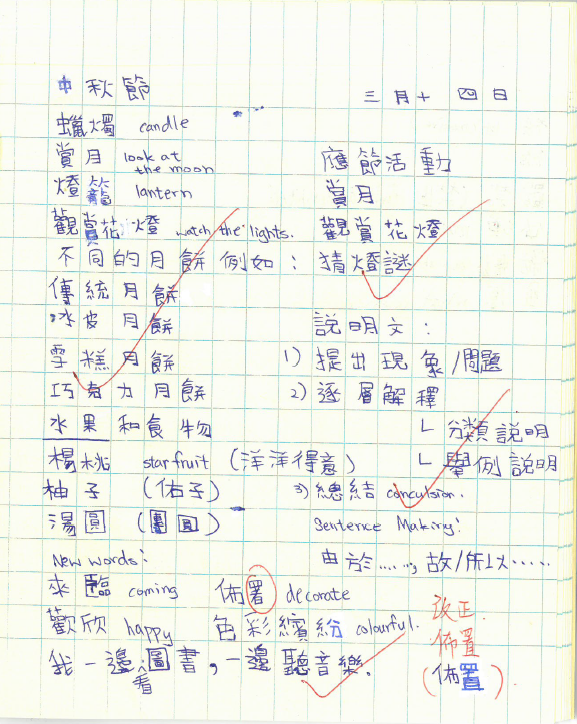 中秋節
三月十四日
蠟燭 candle
賞月 look at the moon
燈籠 lantern
觀賞花燈 watch the lights.
不同的月餅例如：
傳統月餅
冰皮月餅
雪糕月餅
巧克力月餅
水果和食物
楊桃 starfruit (洋洋得意)
柚子 (佑子)
湯圓 (團圓)
應節活動
賞月
觀賞花燈
猜燈謎
說明文：
1) 提出現象/問題
2) 逐層解釋
└ 分類說明
└ 舉例說明
3) 總結 conculsion.
Sentence Making:
由於......, 故/所以......
New words:
來臨 coming 佈署 decorate
歡欣 happy 色彩繽紛 colourful.
我一邊看圖書，一邊聽音樂.
改正
佈置
(佈置)